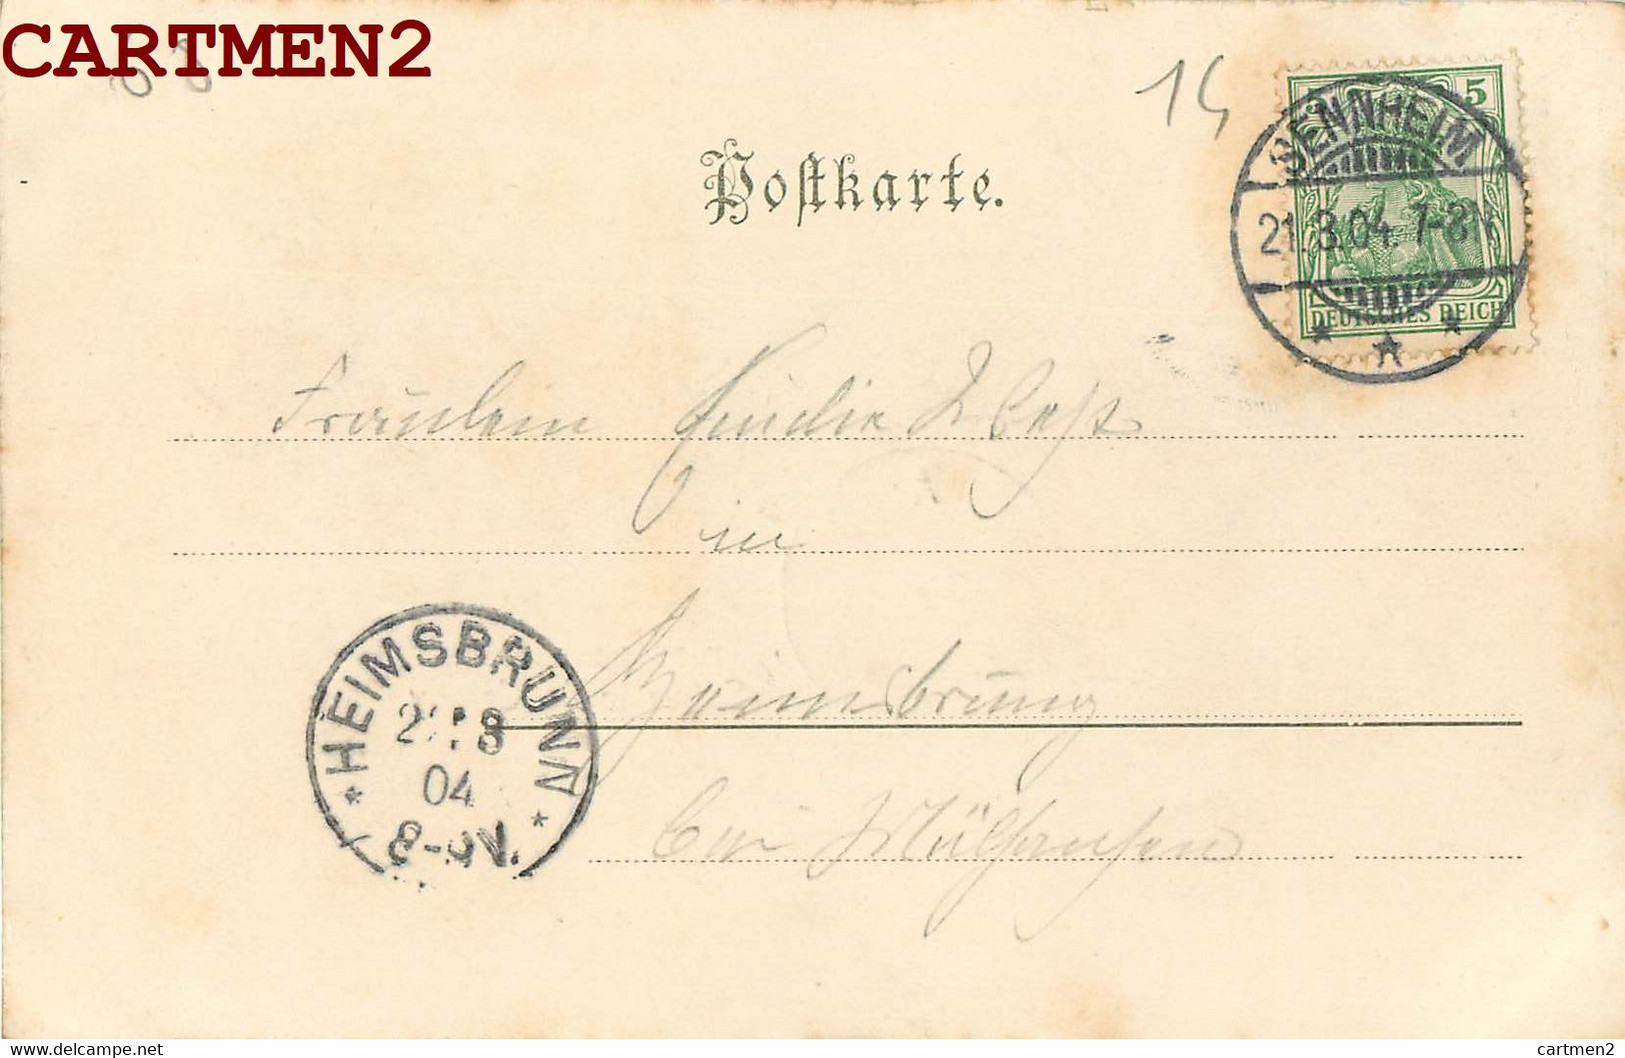 CARTMEN2
14
Postkarte.
5
SENNHEIM
21.3.04. 7-8N
DEUTSCHES REICH
Fräulein Emilie
in
Heimsbrunn
bei Mülhausen
HEIMSBRUNN
22.3
04
8-9V.
www.delcampe.net
cartmen2